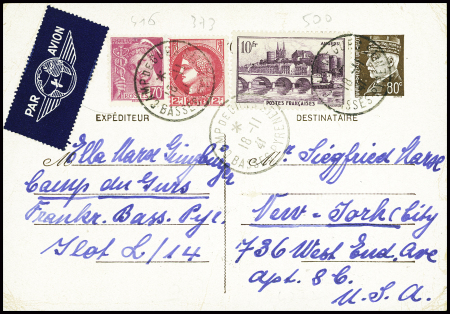 416 373 500
PAR AVION
70
2F
10fr
ANGERS
POSTES FRANÇAISES
80c
EXPÉDITEUR
DESTINATAIRE
18-11
41
Ella Marx
Camp du Gurs
Frankr. Bass. Pyr.
Ilot L/14
Mr. Siegfried Marx
New-York City
736 West End. Ave
apt. 8C.
U.S.A.